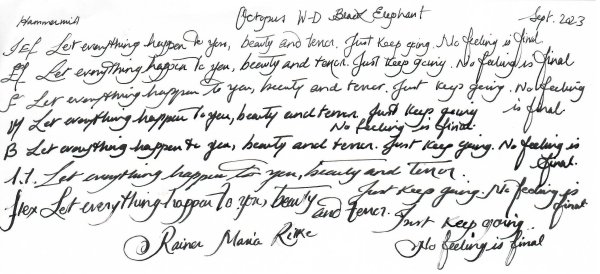 Hammermill Octopus W-D Black Elephant Sept. 2023
EF Let everything happen to you, beauty and terror. Just keep going. No feeling is final.
EF Let everything happen to you, beauty and terror. Just keep going. No feeling is final
F Let everything happen to you, beauty and terror. Just keep going. No feeling
is final
M Let everything happen to you, beauty and terror. Just keep going
No feeling is final.
B Let everything happen to you, beauty and terror. Just keep going. No feeling is
final.
1.1. Let everything happen to you, beauty and terror.
Just keep going. No feeling is
final
flex Let everything happen to you, beauty
and terror. Just keep going
Rainer Maria Rilke No feeling is final